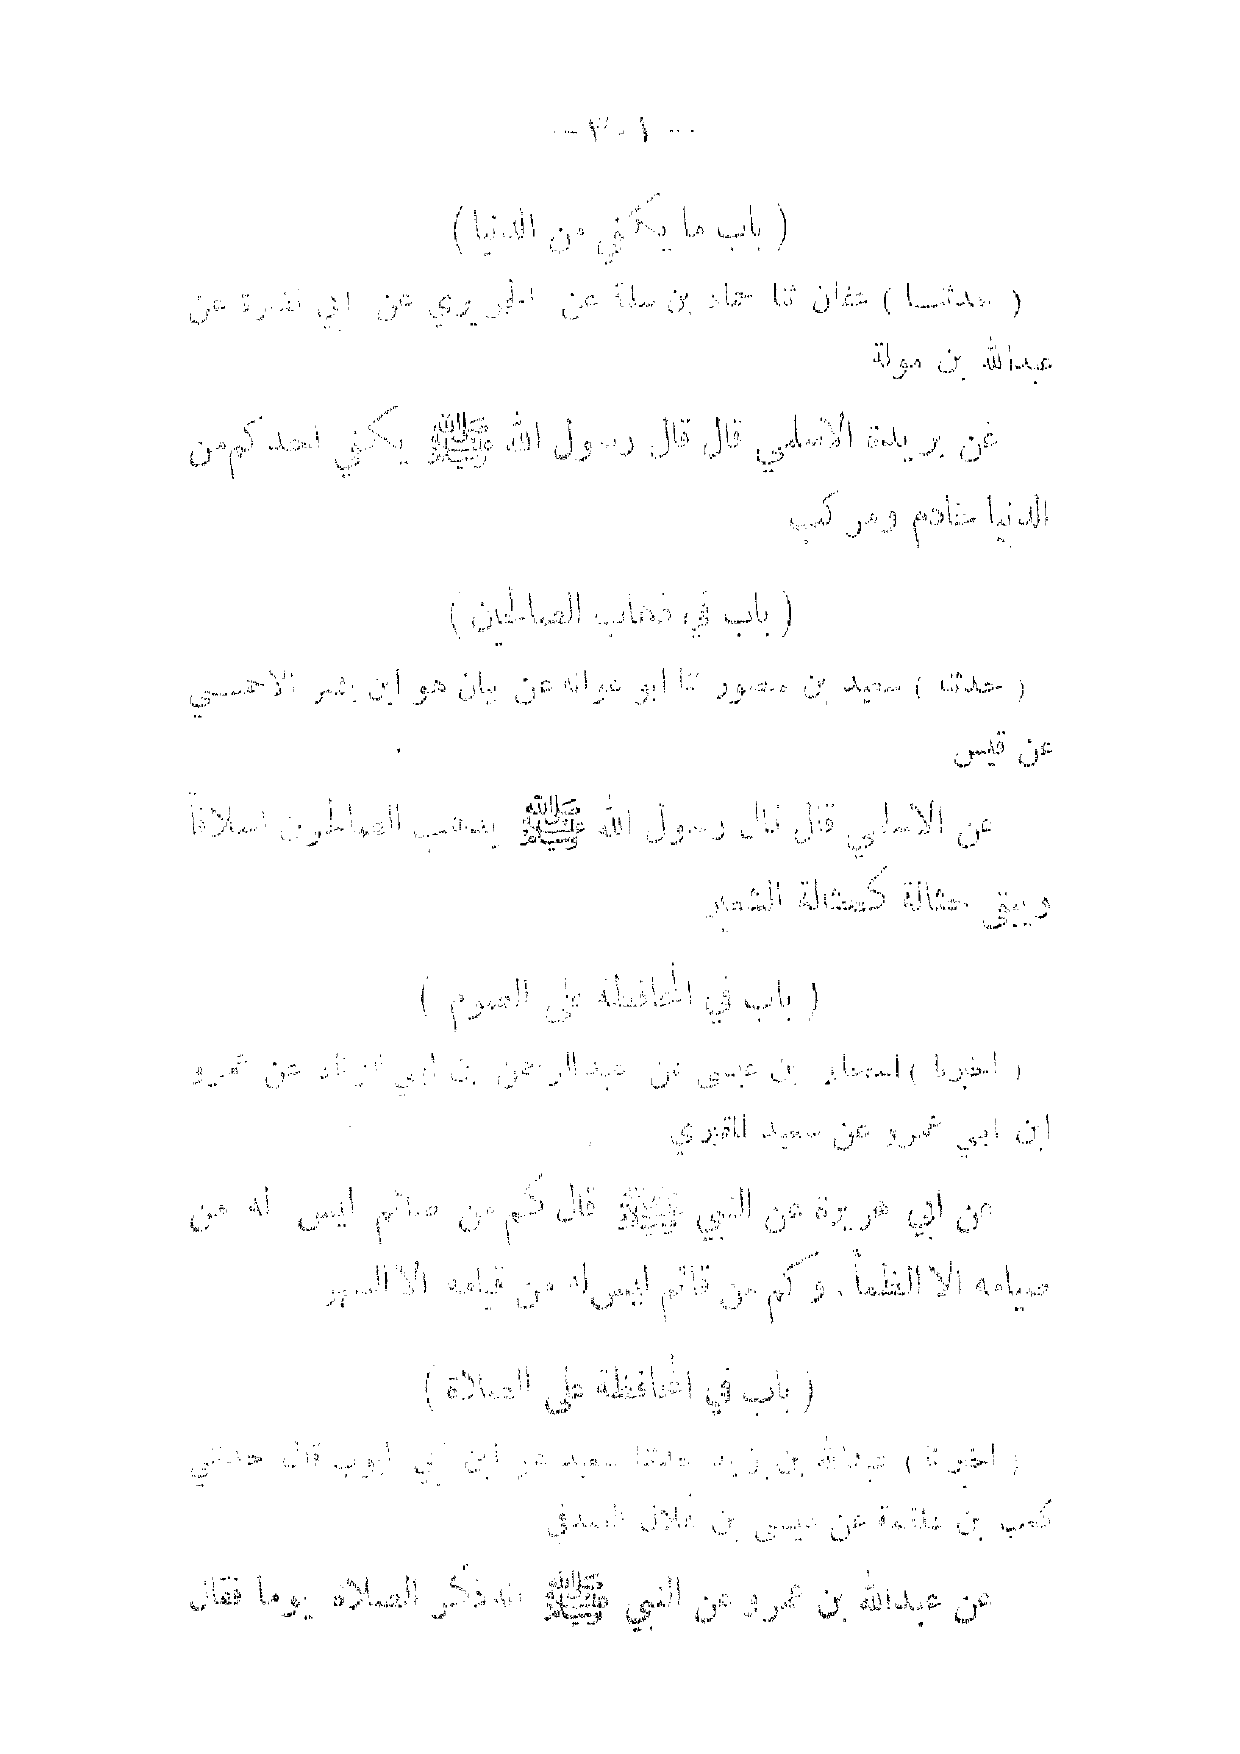 — ٣٠١ —
( باب ما يكفي من الدنيا )
( حدثنــا ) عفان ثنا حماد بن سلمة عن الجريري عن ابي نضرة عن
عبدالله بن مولة
عن بريدة الاسلمي قال قال رسول الله ﷺ يكفي احدكم من
الدنيا خادم ومركب
( باب في ذهاب الصالحين )
( حدثنا ) سعيد بن منصور ثنا ابو عوانه عن بيان هو ابن بشر الاحمسي
عن قيس
عن الاسلمي قال قال رسول الله ﷺ يذهب الصالحون اسلافاً
ويبقى حثالة كحثالة الشعير
( باب في المحافظة على الصوم )
( اخبرنا ) اسحاق بن عيسى عن عبدالرحمن بن ابي الزناد عن عمرو
ابن ابي عمرو عن سعيد المقبري
عن ابي هريرة عن النبي ﷺ قال كم من صائم ليس له من
صيامه الا الظمأ . وكم من قائم ليس له من قيامه الا السهر
( باب في المحافظة على الصلاة )
( اخبرنا ) عبدالله بن يزيد حدثنا سعيد هو ابن ابي ايوب قال حدثني
كعب بن علقمة عن عيسى بن هلال الصدفي
عن عبدالله بن عمرو عن النبي ﷺ انه ذكر الصلاه يوماً فقال